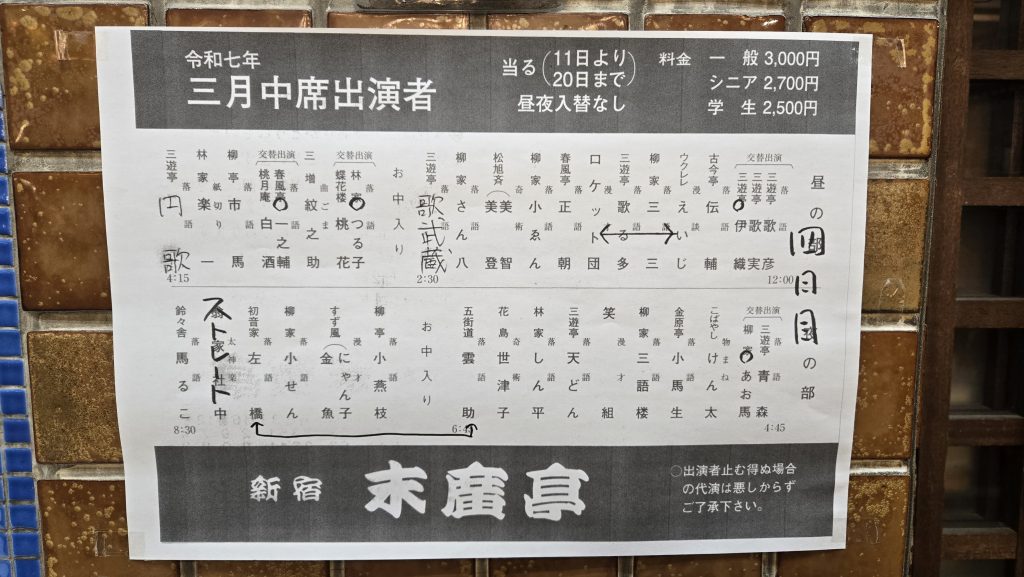 令和七年
三月中席出演者
当る(11日より
20日まで)
昼夜入替なし
料金 一般 3,000円
シニア 2,700円
学生 2,500円
昼の部
四日目
12:00
交替出演
落語 三遊亭歌彦
三遊亭歌実
○三遊亭伊織
落語 古今亭伝輔
ウクレレ漫談 えいじ
落語 柳家三三
落語 三遊亭歌る多
漫才 ロケット団
落語 春風亭正朝
落語 柳家小ゑん
奇術 松旭斉(美智
美登
落語 柳家さん八
三遊亭 歌武蔵
2:30
お中入り
交替出演
落語 林家○つる子
蝶花楼桃花
曲ごま 三増紋之助
交替出演
落語 春風亭○一之輔
桃月庵白酒
落語 柳亭市馬
紙切り 林家楽一
落語 三遊亭円歌
4:15
の部
4:45
交替出演
落語 三遊亭青森
柳家○あお馬
物まね こばやしけん太
落語 金原亭小馬生
落語 柳家三語楼
漫才 笑組
落語 三遊亭天どん
落語 林家しん平
奇術 花島世津子
落語 五街道雲助
6:45
お中入り
落語 柳亭小燕枝
漫才 すず風(にゃん子
金魚
落語 柳家小せん
落語 初音家左橋
太神楽 家社中
ストレート
落語 鈴々舎馬るこ
8:30
新宿 末廣亭
○出演者止む得ぬ場合
の代演は悪しからず
ご了承下さい。